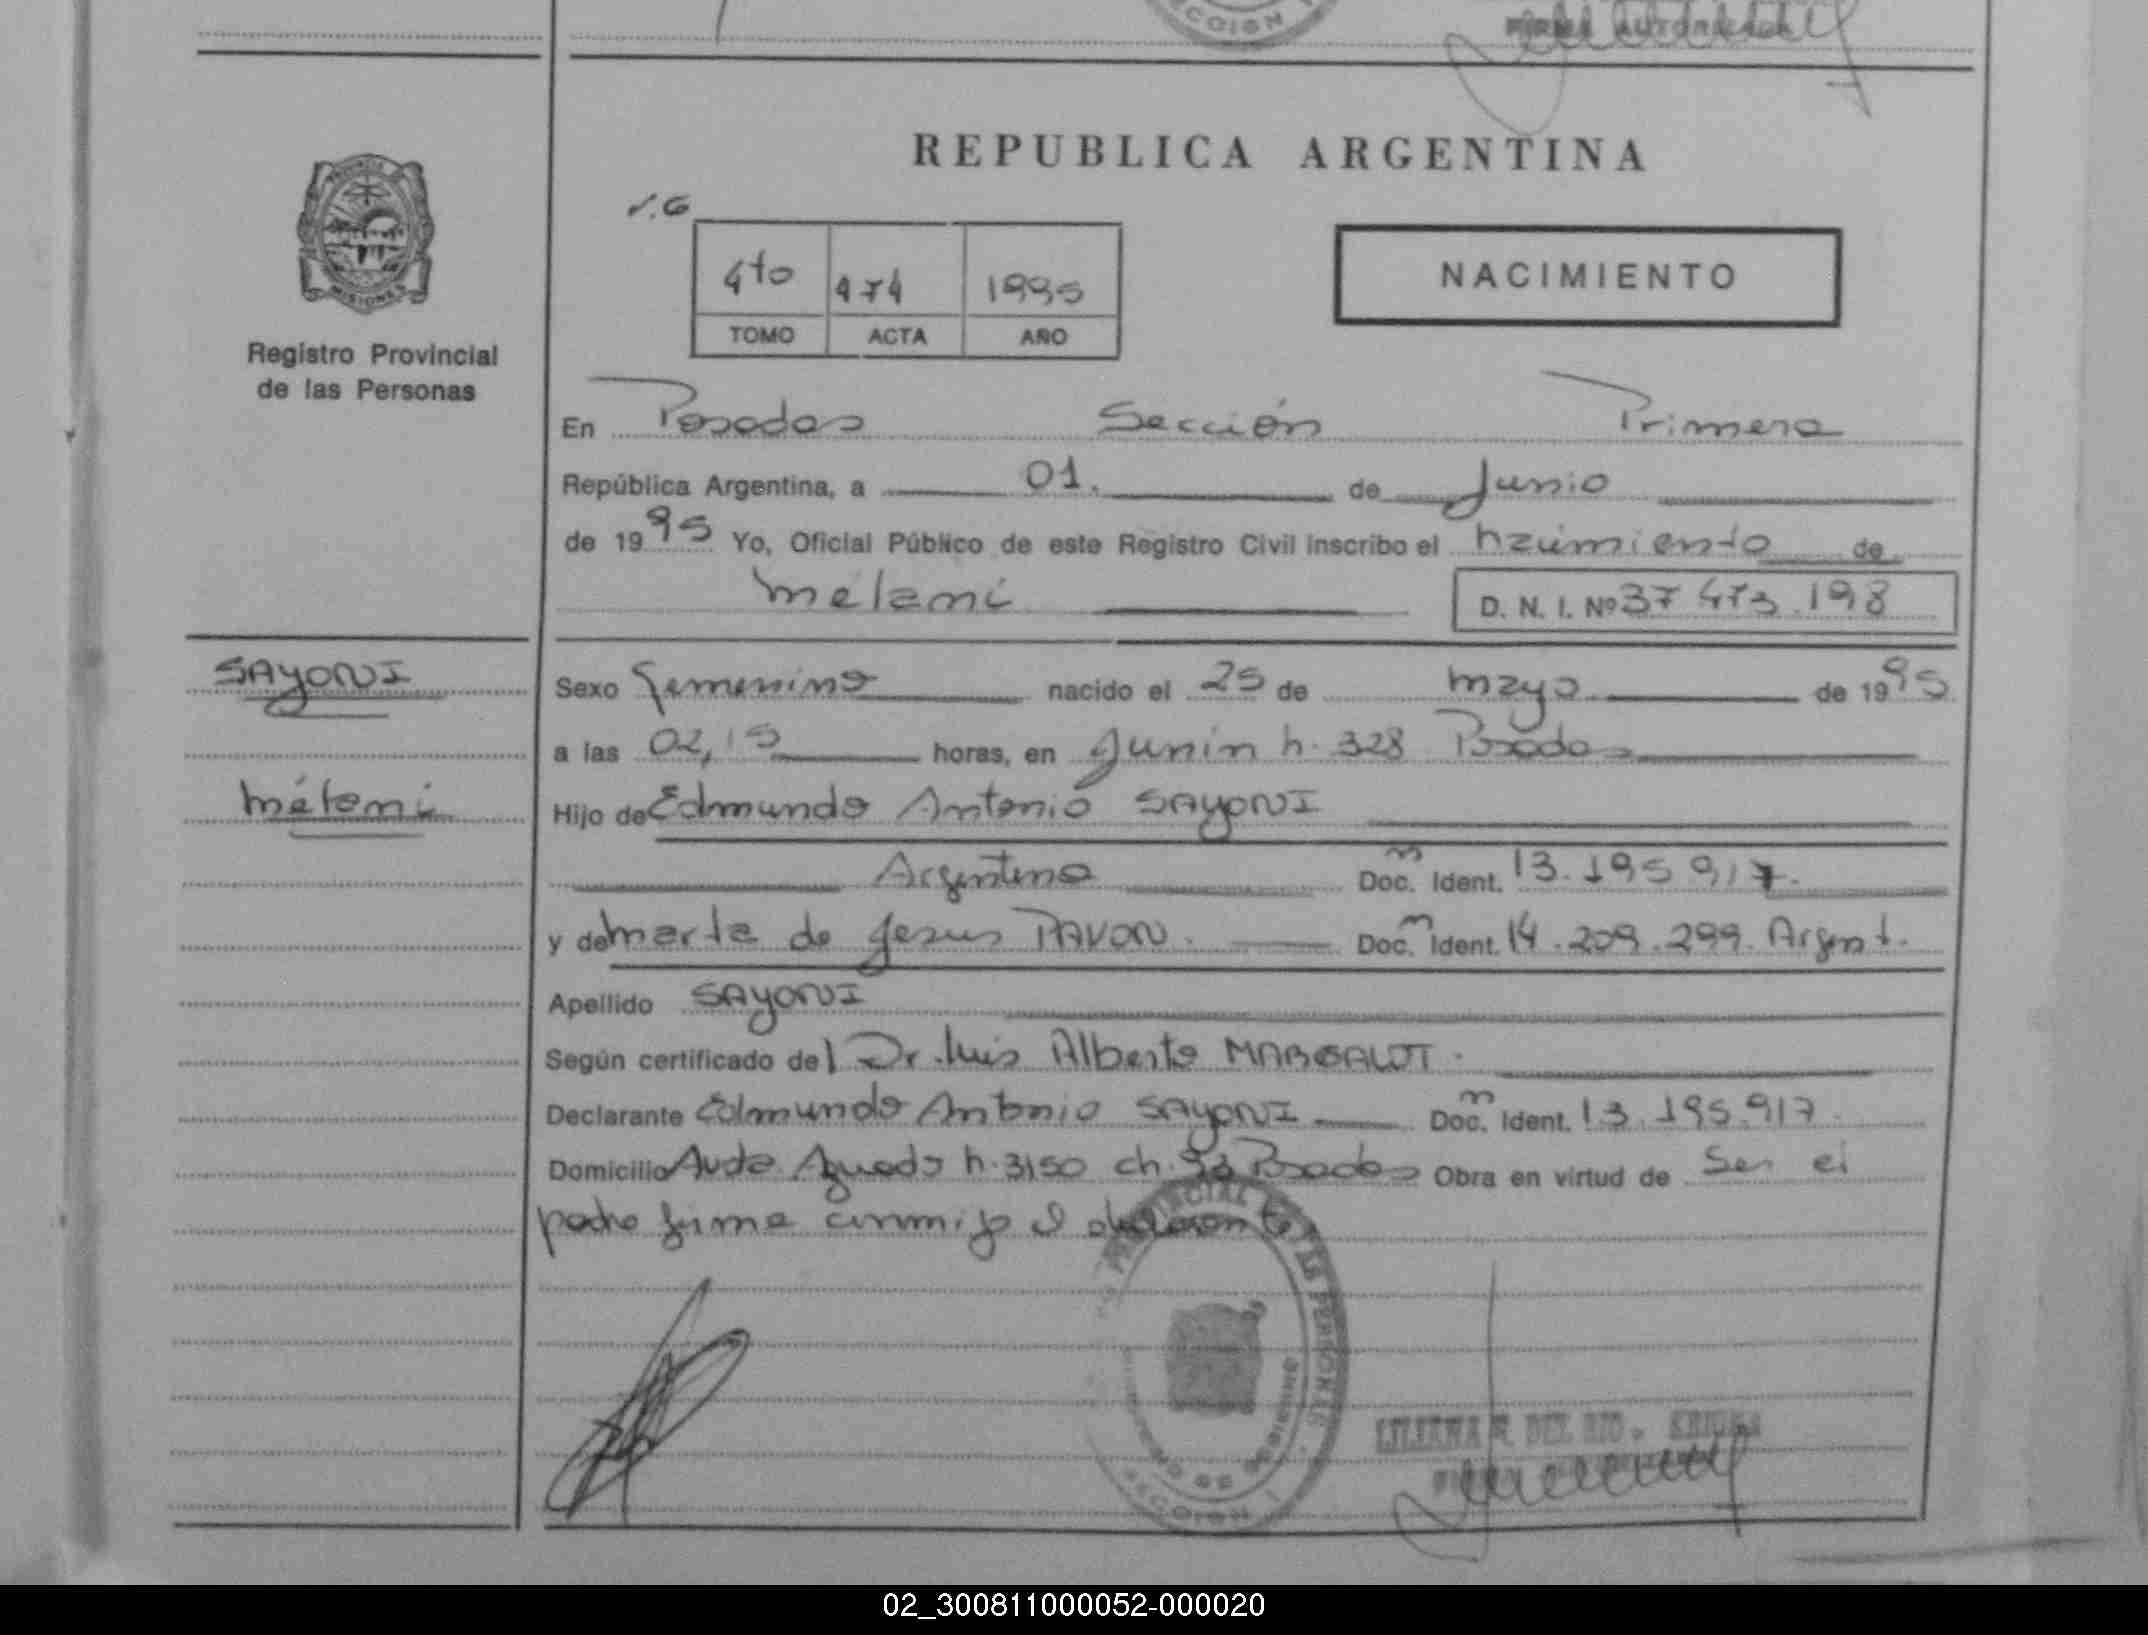 SECCION
FIRMA AUTORIZADA
REPUBLICA ARGENTINA
PROVINCIA
MISIONES
Registro Provincial
de las Personas
4to 474 1995
TOMO ACTA AÑO
NACIMIENTO
En Posadas Sección Primera
República Argentina, a 01. de Junio
de 1995 Yo, Oficial Público de este Registro Civil inscribo el nacimiento de
Mélani D. N. I. Nº 37 473.198
SAYONI
Mélani
Sexo femenino nacido el 25 de mayo de 1995
a las 02,15 horas, en Junin n. 328 Posadas
Hijo de Edmundo Antonio SAYONI
Argentino Doc. Ident. 13.195 917.
y de Marta de Jesus PAVON. Doc. Ident. 14.209.299. Argent.
Apellido SAYONI
Según certificado del Dr. Luis Alberto
Declarante Edmundo Antonio SAYONI Doc. Ident. 13.195.917.
Domicilio Avda. Aguado n. 3150 ch. Posadas Obra en virtud de Ser el
padre firma conmigo el declarante
PROVINCIAL DE LAS PERSONAS
SECCION 1
LILIANA R. DEL RIO
02_300811000052-000020